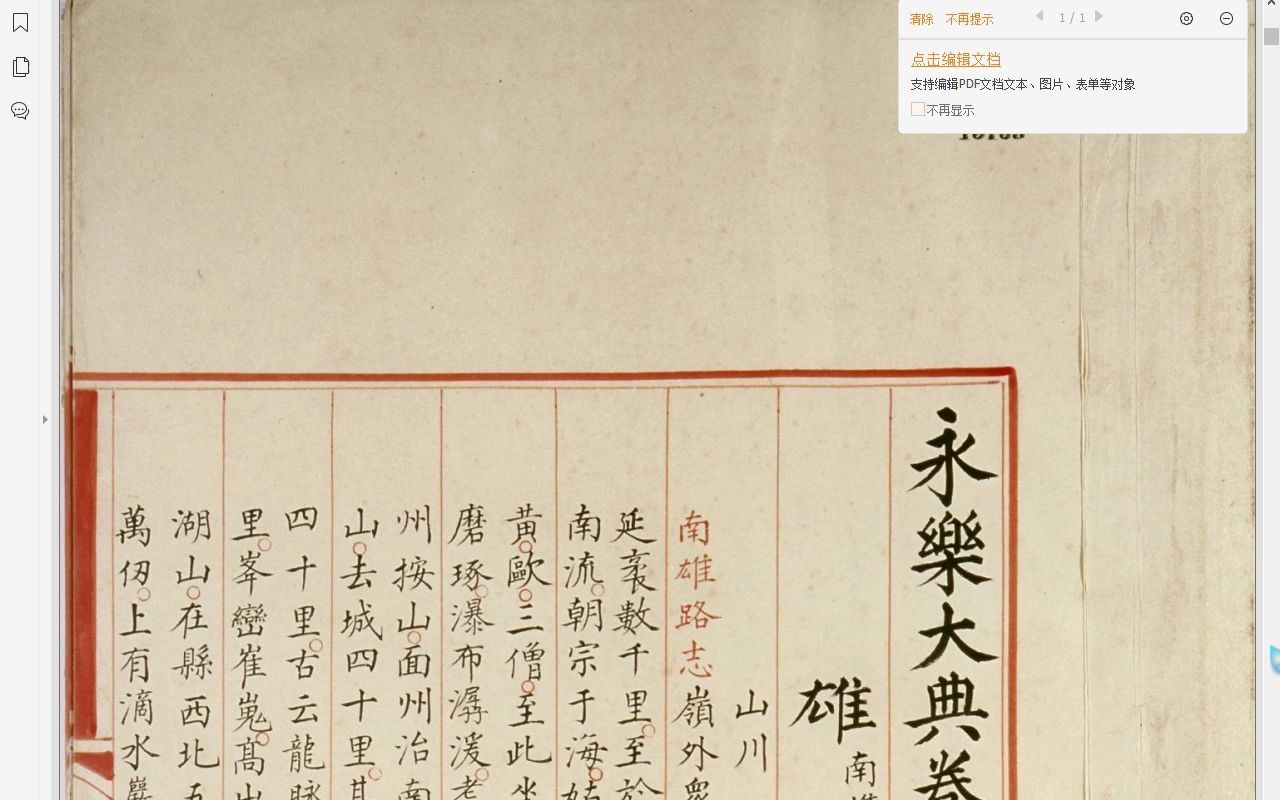 清除 不再提示 1 / 1
点击编辑文档
支持编辑PDF文档文本、图片、表单等对象
不再显示
永樂大典卷
雄 南
山川
南雄路志嶺外衆
延袤數千里至於
南流朝宗于海
黃歐三僧至此坐
磨琢瀑布潺湲老
州按山面州治南
山去城四十里其
四十里古云龍脉
里峯巒崔嵬髙出
湖山在縣西北五
萬仞上有滴水巖